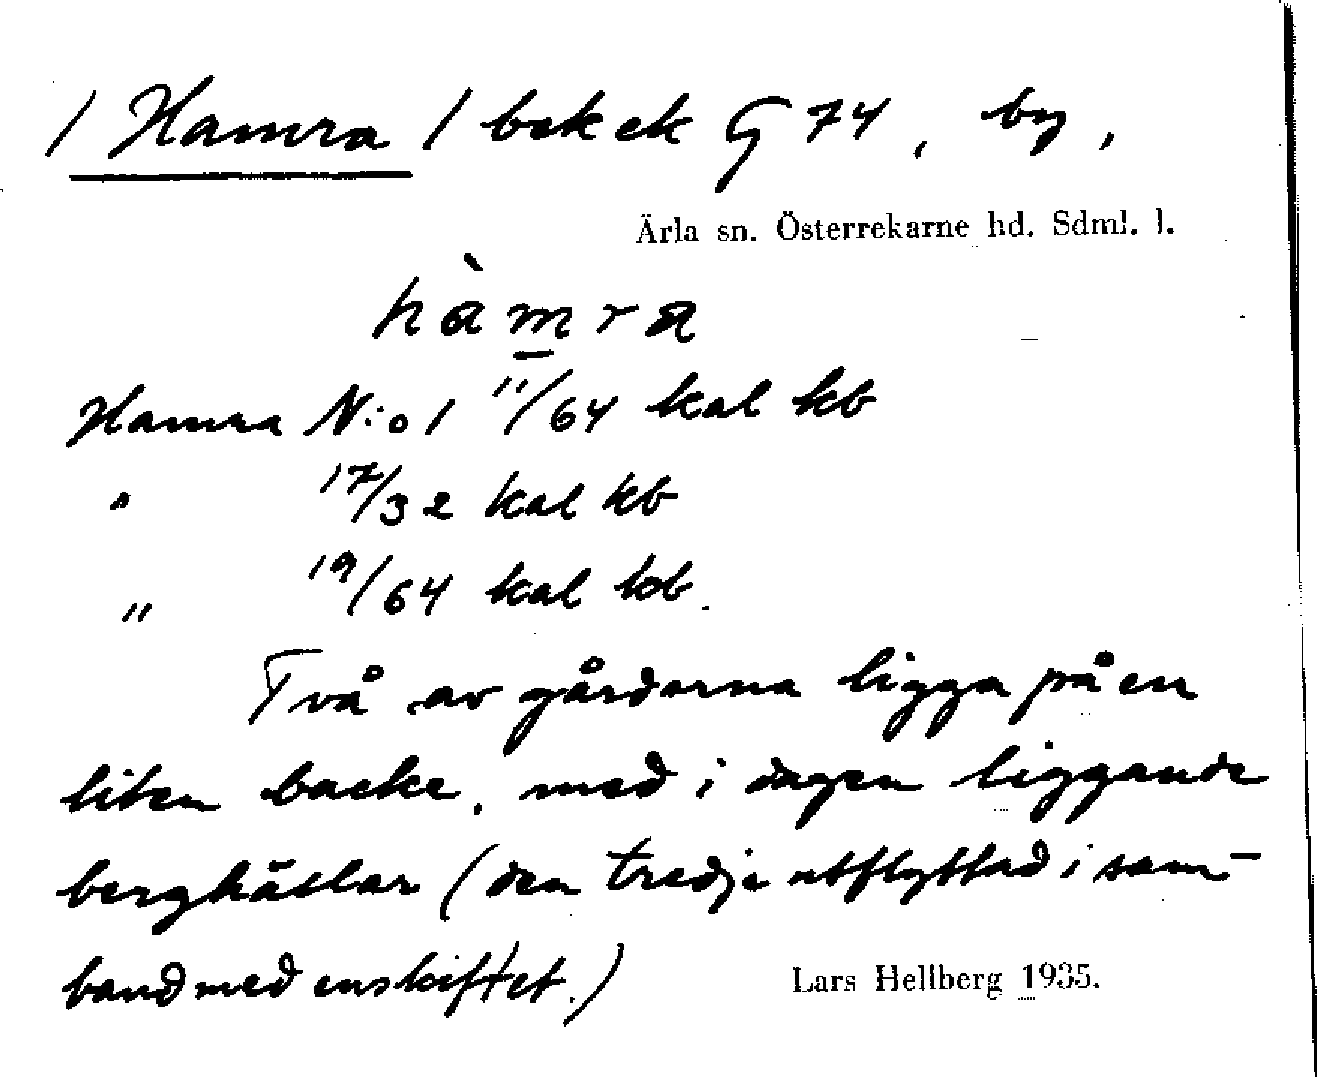 / Hamra / bek ek G 74, by,
Ärla sn. Österrekarne hd. Sdml. l.
hàm̲ra
Hamra N:o 1 11/64 kal kb
" 17/32 kal kb
" 19/64 kal kb.
Två av gårdarna ligga på en
liten backe, med i dagen liggande
berghällar (den tredje utflyttad i sam-
band med enskiftet.)
Lars Hellberg 1935.